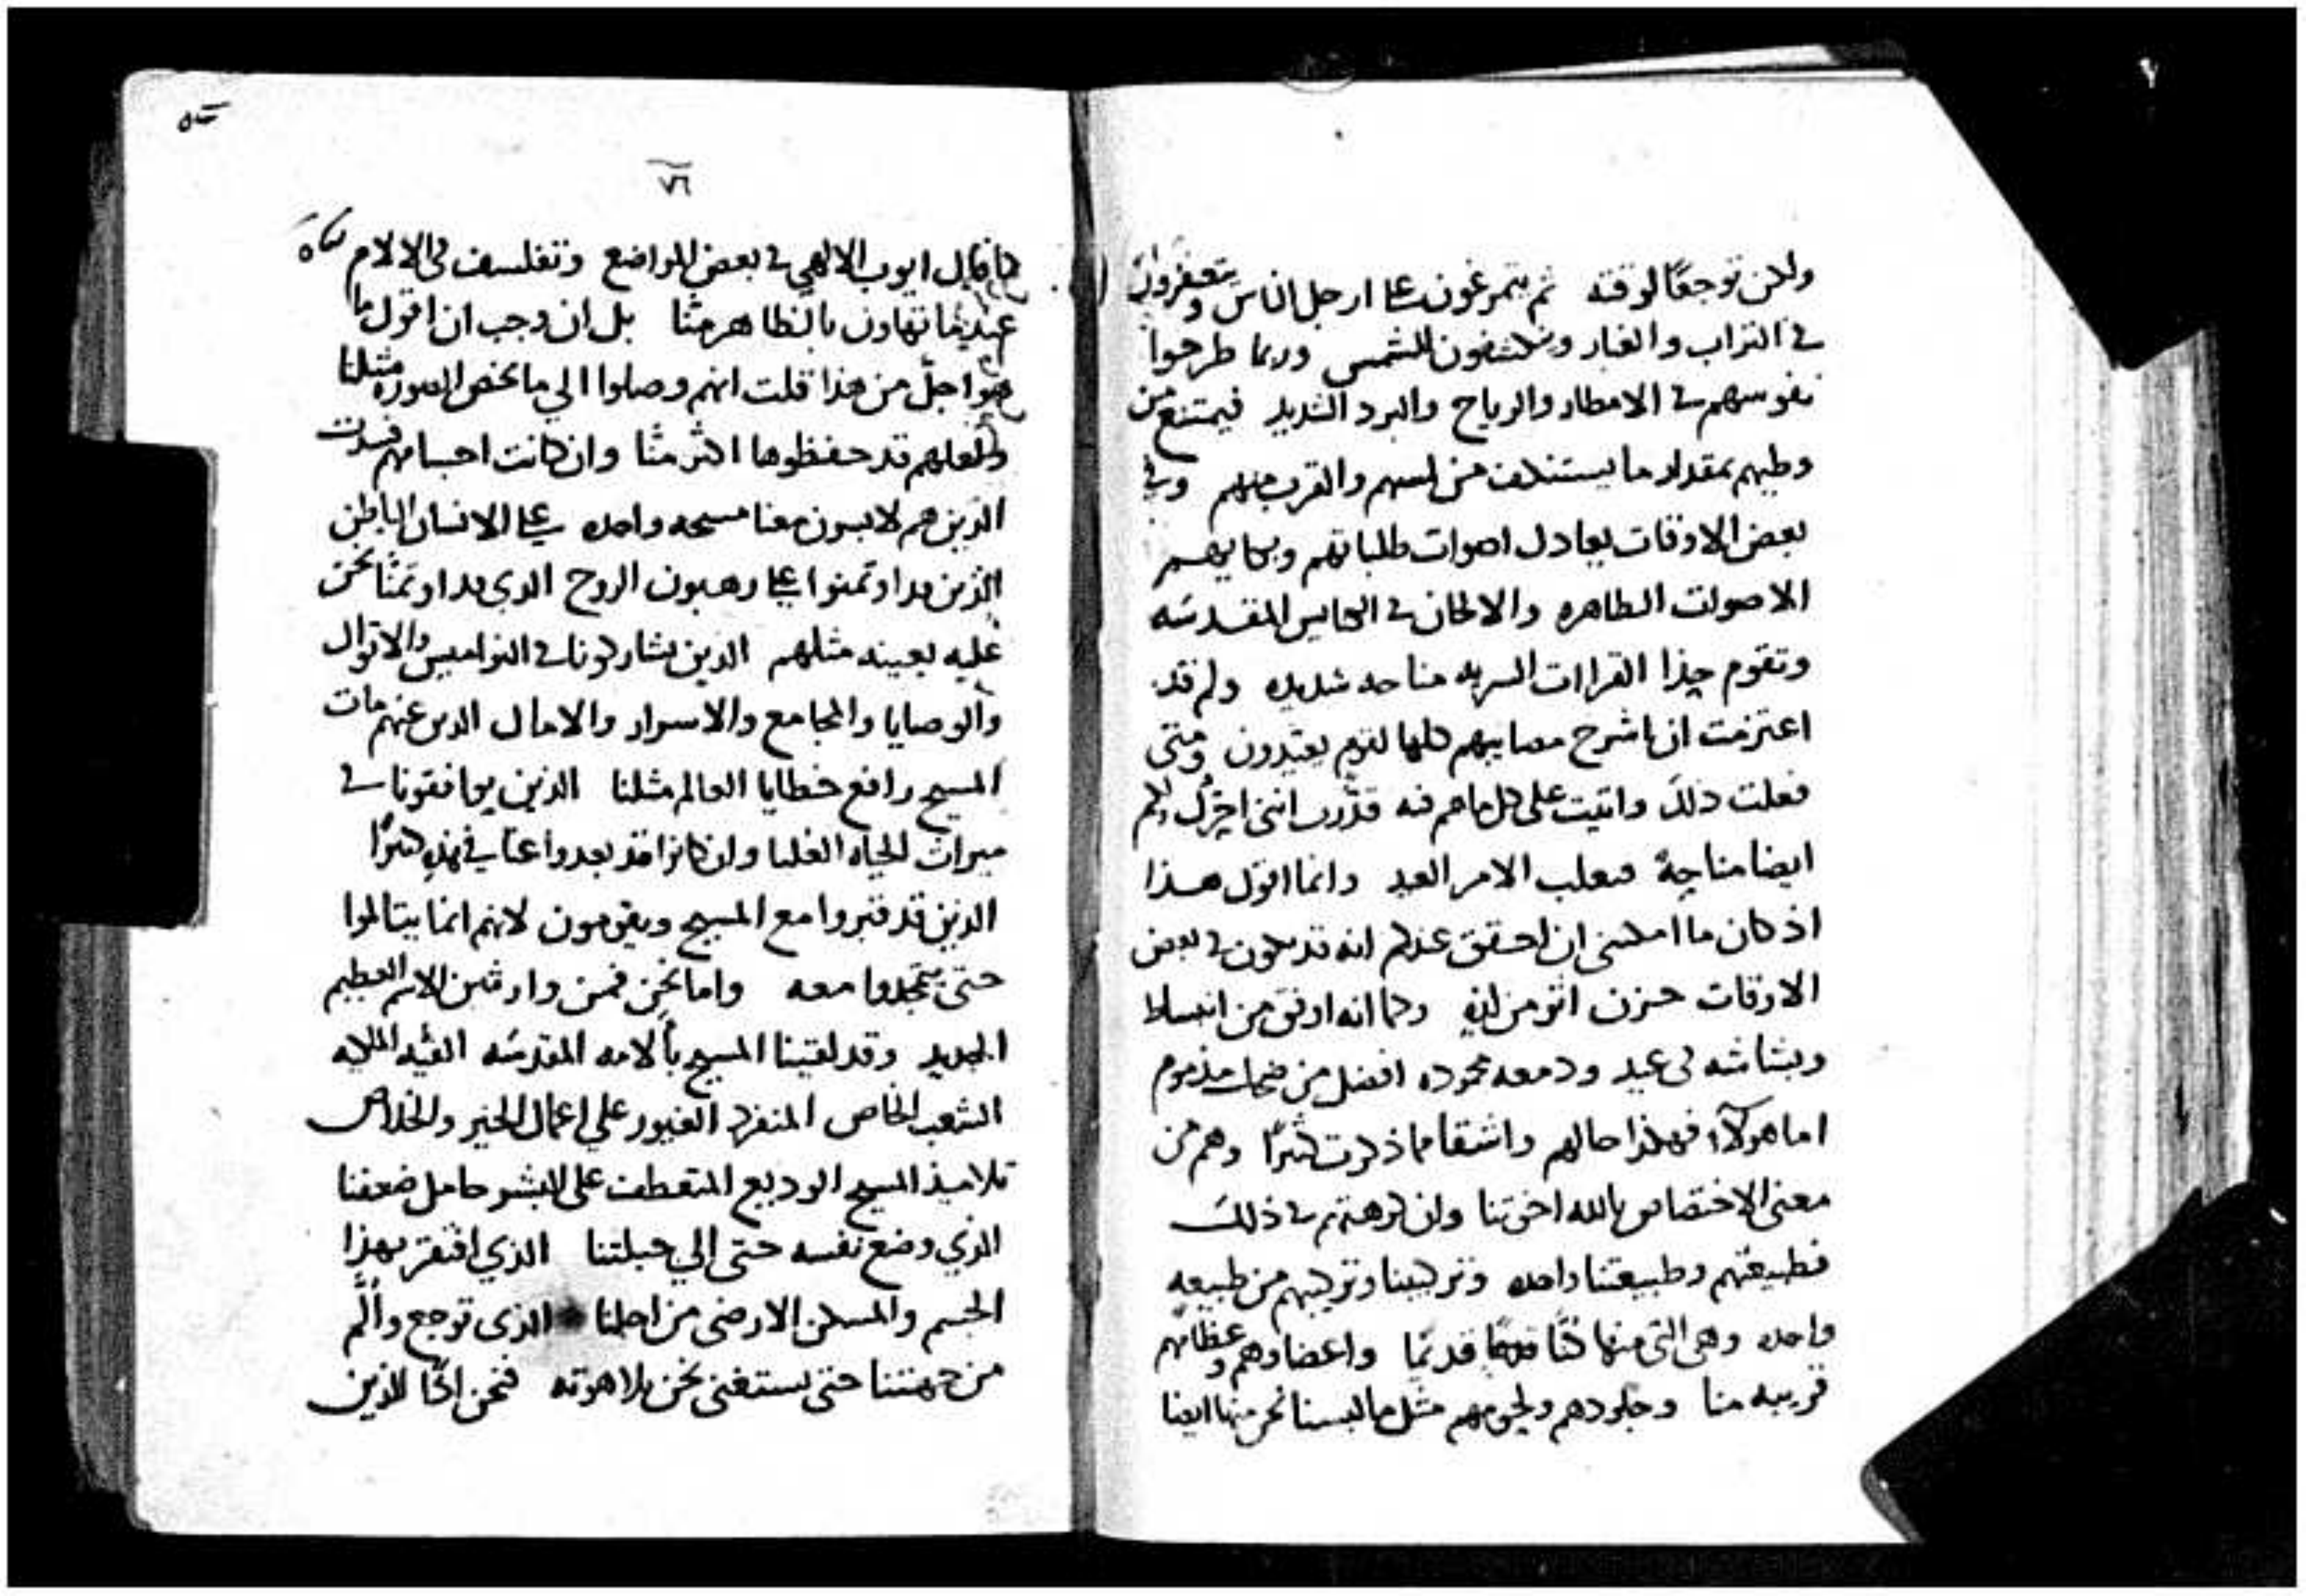 ولكن توجعًا لوقته ثم يتمرغون على ارجل الناس ويتعفرون
في التراب والغبار وينكشفون للشمس وربما طرحوا
نفوسهم في الامطار والرياح والبرد الشديد فيمتنع من
وطيهم بمقدار ما يستنكف من لمسهم والقرب منهم وفي
بعض الاوقات يعادل اصوات طلباتهم وبكايهم
الاصوات الطاهره والالحان في الكنايس المقدسه
وتقوم حذا القراات السريه مناحه شديده ولم قد
اعتزمت ان اشرح مصايبهم كلها لقوم يعيدون ومتى
فعلت ذلك واتيت على كل ماهم فيه قدرت انني احرك لكم
ايضا مناحةً فيغلب الامر العيد وانما اقول هذا
اذ كان ما امكنني ان احقق عندكم انه قد يكون في بعض
الاوقات حزن اثر من لذه وكما انه اوفق من انبساط
وبشاشه في عيد ودمعه محموده افضل من ضحك مذموم
اما هولاء فهكذا حالهم واشقا مما ذكرت كثيرًا وهم من
معنى الاختصاص بالله اخوتنا وان كرهتم في ذلك
فطبيعتهم وطبيعتنا واحده وتركيبنا وتركيبهم من طبيعه
واحده وهي التي منها كنّا قديمًا واعضاوهم وعظامهم
قريبه منا وجلودهم ولحومهم مثل ما لبسنا نحن منها ايضا
٧٦
كما قال ايوب الالهي في بعض المواضع وتفلسف في الالام
عندما تهاون بالظاهر منّا بل ان وجب ان اقول ما
هو اجلّ من هذا قلت انهم وصلوا الي ما يخص الصوره مثلنا
ولعلهم قد حفظوها اكثر منّا وان كانت اجسامهم فسدت
الذين هم لابسون معنا مسيحه واحده على الانسان الباطن
الذين قد اوتمنوا على رهبون الروح الذي قد اوتمنّا نحن
عليه بعينه مثلهم الذين يشاركونا في النواميس والاقوال
والوصايا والمجامع والاسرار والامال الذين عنهم مات
المسيح رافع خطايا العالم مثلنا الذين يوافقونا في
ميراث الحياه العليا وان كانوا قد بعدوا عنا في هذه كثيرًا
الذين قد قبروا مع المسيح ويقومون لانهم انما يتالموا
حتى يتمجدوا معه واما نحن فمن وارثين الاسم العظيم
الجديد وقد لقينا المسيح بالامه المقدسه الفيه الملكيه
الشعب الخاص المنفرد الغيور علي اعمال الخير والخلاص
تلاميذ المسيح الوديع المتعطف على البشر حامل ضعفنا
الذي وضع نفسه حتى الي جبلتنا الذي افتقر بهذا
الجسم والمسكن الارضي من اجلنا الذي توجع وألّم
من جهتنا حتى يستغني نحن بلاهوته فنحن الان الذين